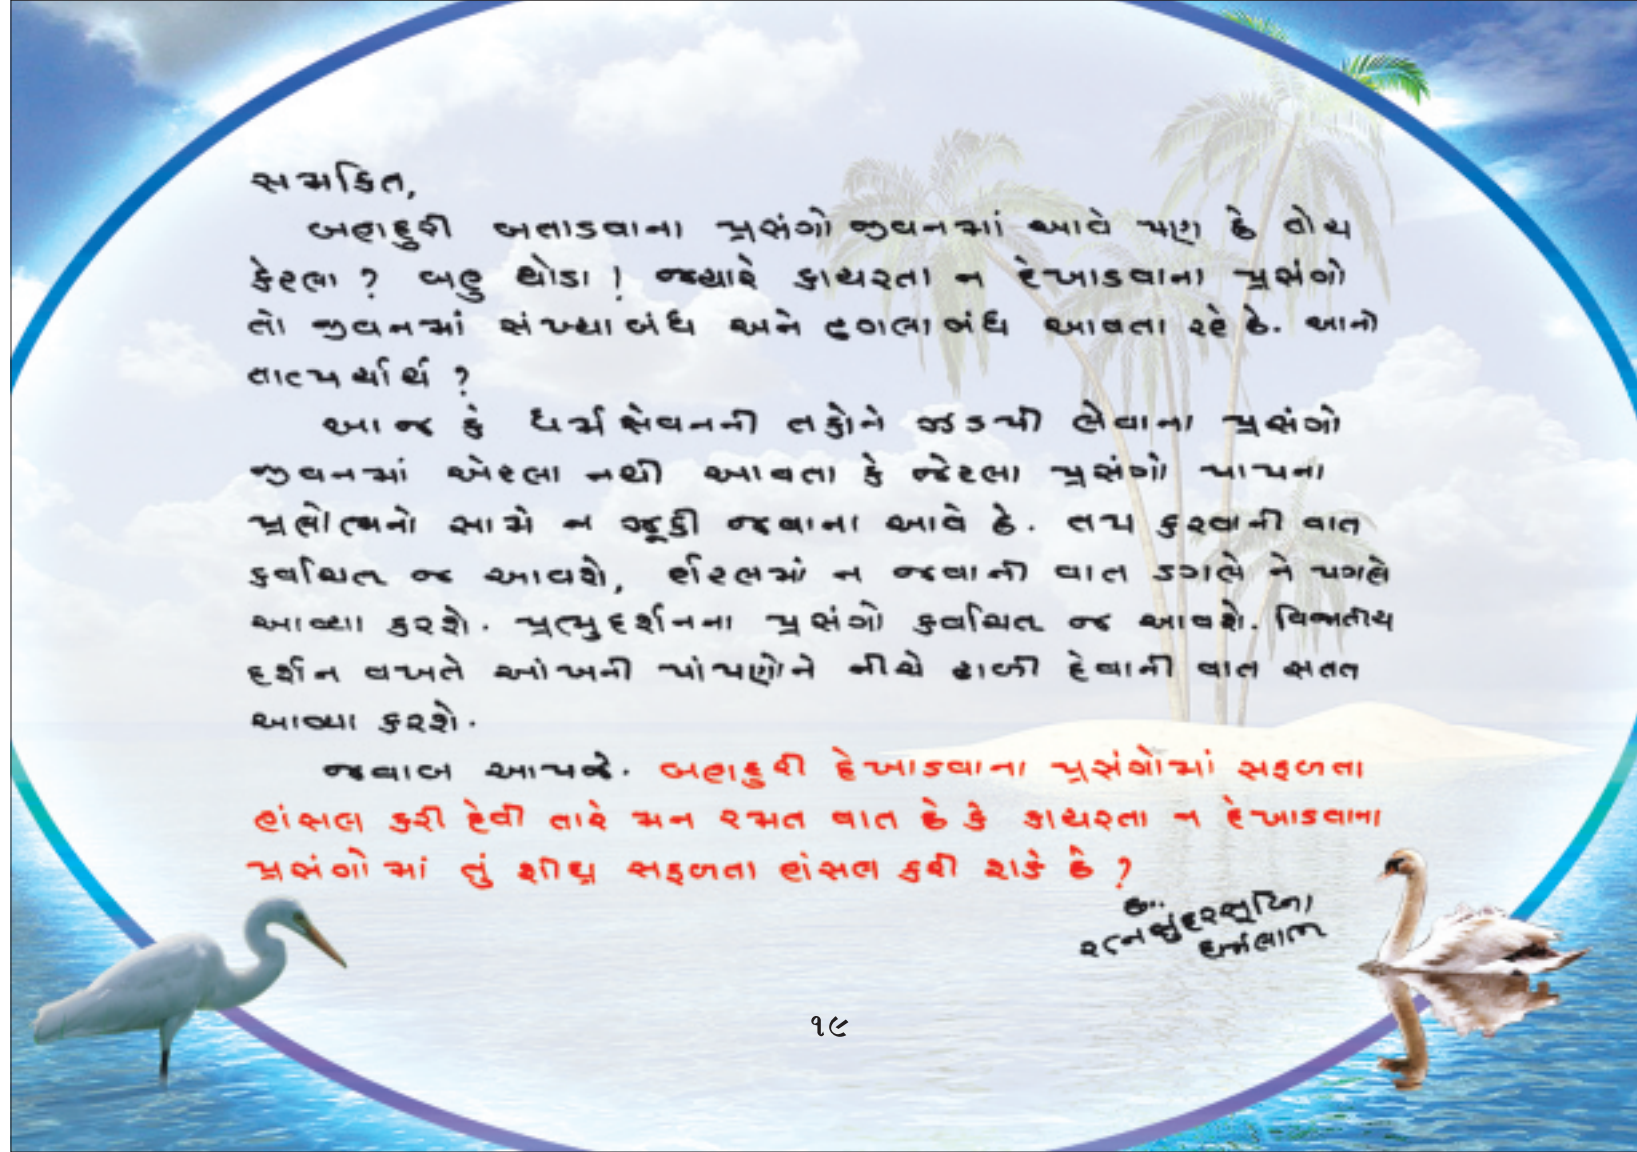 સમકિત,
બહાદુરી બતાડવાના પ્રસંગો જીવનમાં આવે પણ છે તોય
કેટલા ? બહુ થોડા ! જ્યારે કાયરતા ન દેખાડવાના પ્રસંગો
તો જીવનમાં સંખ્યાબંધ અને ઢગલાબંધ આવતા રહે છે. આનો
તાત્પર્યાર્થ ?
આ જ કે ધર્મસેવનની તકોને ઝડપી લેવાના પ્રસંગો
જીવનમાં એટલા નથી આવતા કે જેટલા પ્રસંગો પાપના
પ્રલોભનો સામે ન ઝૂકી જવાના આવે છે. તપ કરવાની વાત
ક્વચિત્ જ આવશે, હૉટલમાં ન જવાની વાત ડગલે ને પગલે
આવ્યા કરશે. પ્રભુદર્શનના પ્રસંગો ક્વચિત્ જ આવશે. વિજાતીય
દર્શન વખતે આંખની પાંપણોને નીચે ઢાળી દેવાની વાત સતત
આવ્યા કરશે.
જવાબ આપજે. બહાદુરી દેખાડવાના પ્રસંગોમાં સફળતા
હાંસલ કરી દેવી તારે મન રમત વાત છે કે કાયરતા ન દેખાડવાના
પ્રસંગોમાં તું શીઘ્ર સફળતા હાંસલ કરી શકે છે ?
દ..
રત્નસુંદરસૂરિના
ધર્મલાભ
૧૯